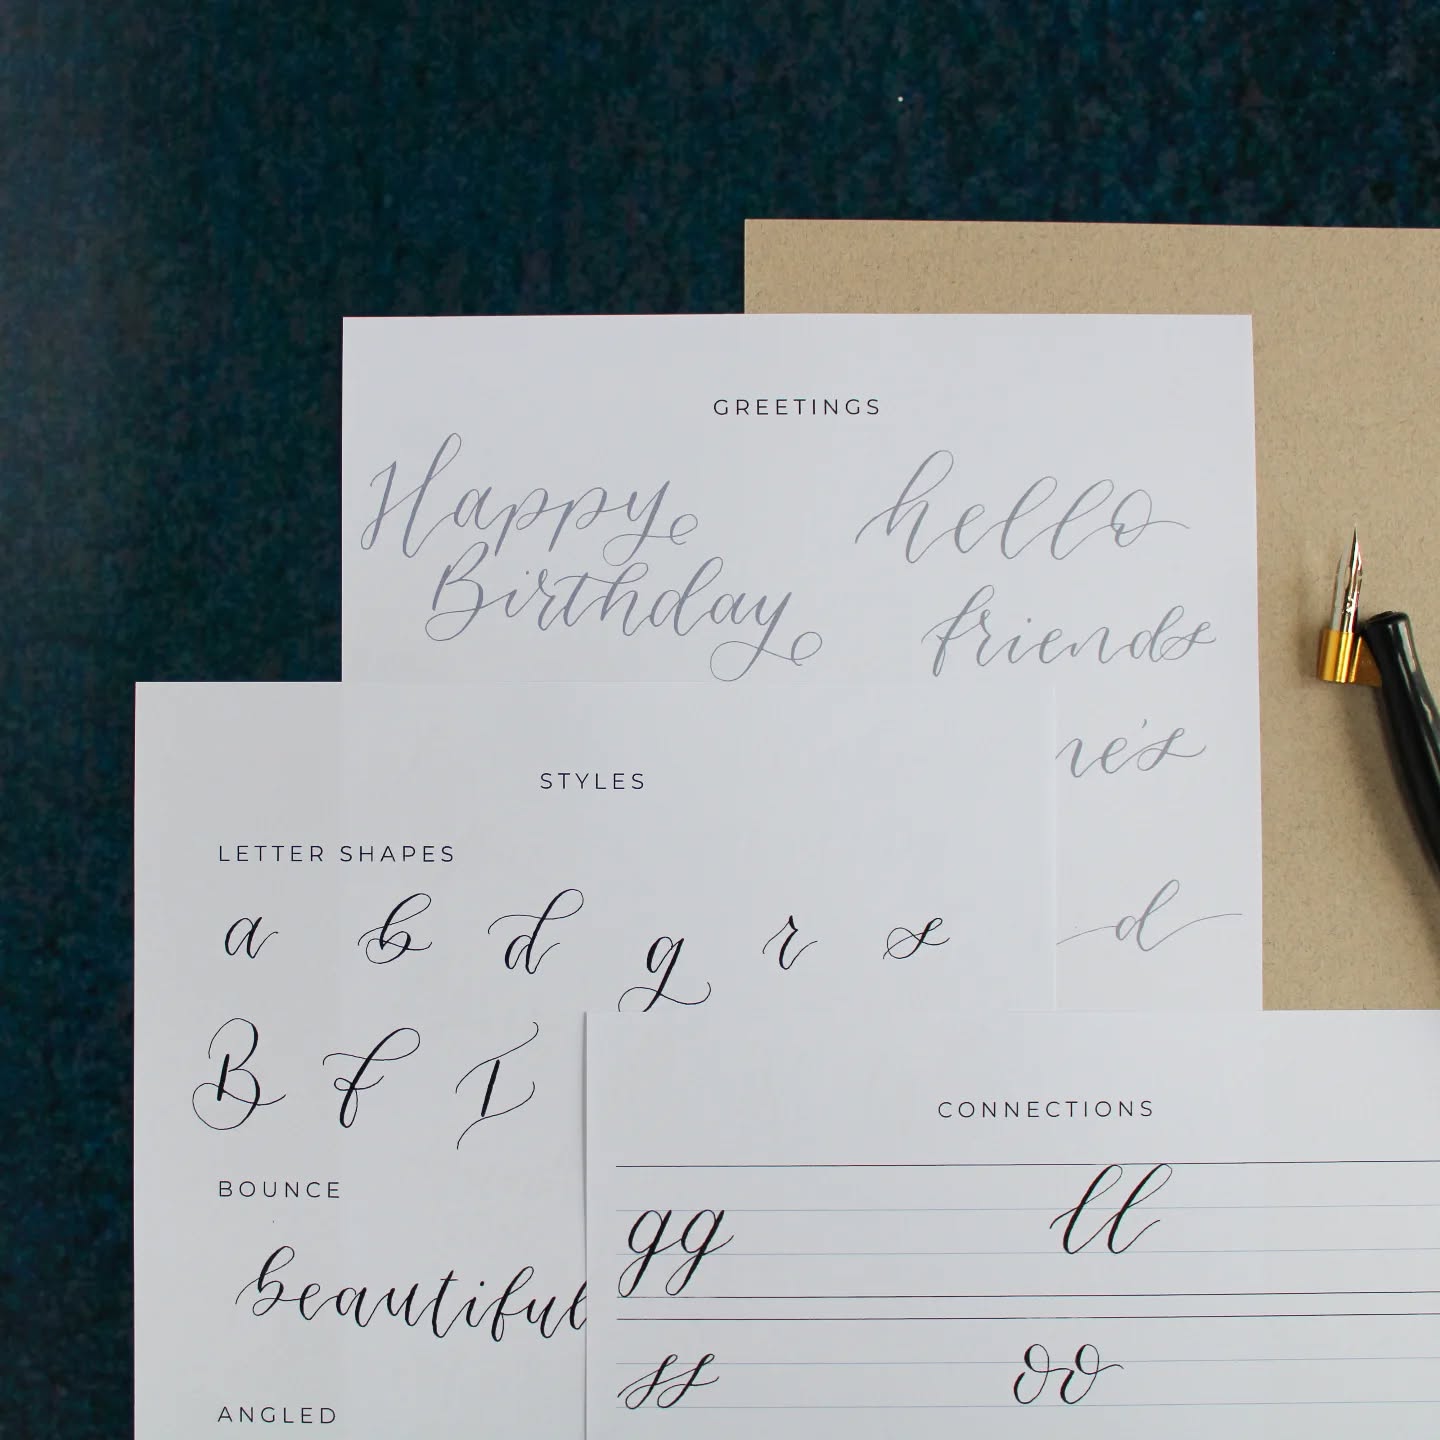 GREETINGS
Happy
Birthday
hello
friends
STYLES
LETTER SHAPES
a b d g r s
B f I
BOUNCE
beautiful
ANGLED
CONNECTIONS
gg ll
ss oo